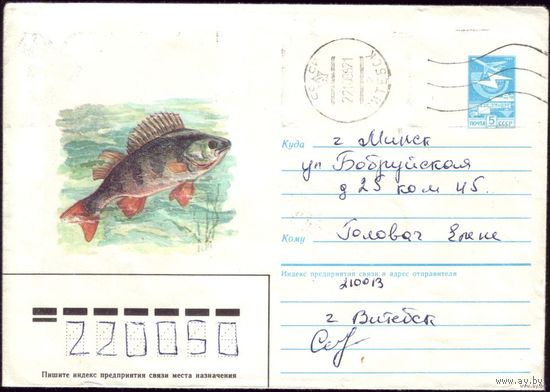 ПОЧТА 5К СССР
ВИТЕБСК
Куда г Минск
ул Бобруйская
д 25 ком 45.
Кому Головач Елене
Индекс предприятия связи и адрес отправителя
210013
г Витебск
220050
Пишите индекс предприятия связи места назначения
www.ay.by